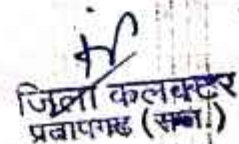 जिला कलक्टर
प्रतापगढ़ (राज.)